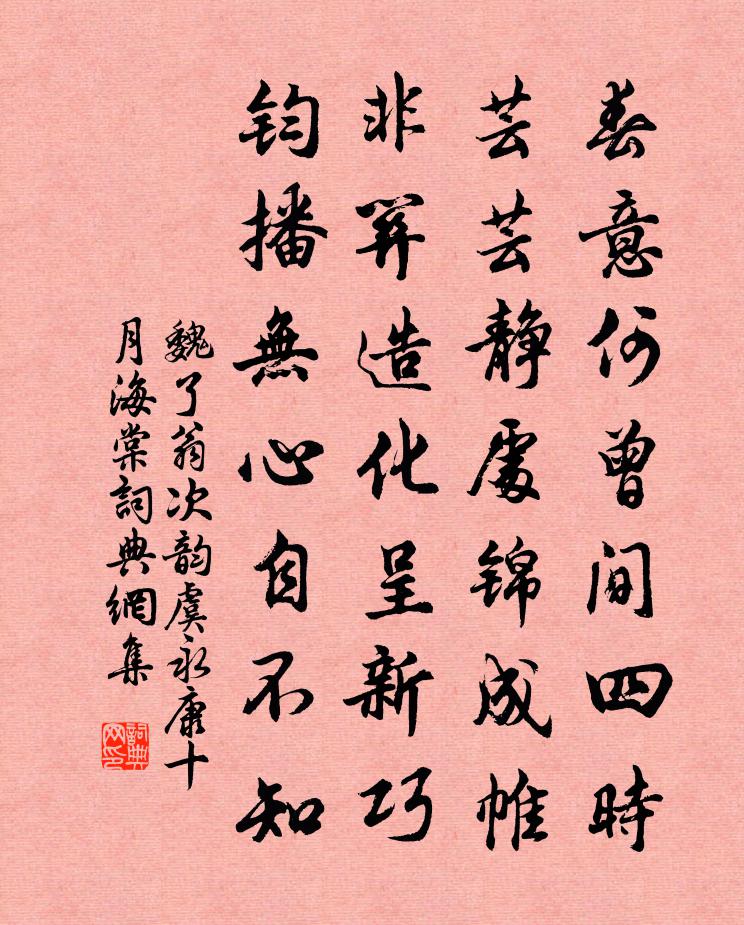 春意何曾间四時
芸芸静處锦成帷
非關造化呈新巧
钧播無心自不知
魏了翁次韵虞永康十
月海棠詞典網集
詞典网印